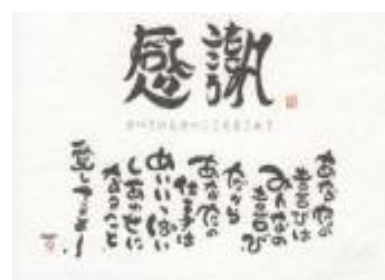 感謝
あなたの
喜びは
みんなの
喜び
だから
あなたの
仕事は
めいいっぱい
しあわせに
なること
愛してるよー